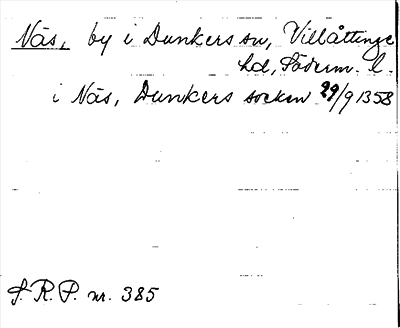 Näs, by i Dunkers sn, Villåttinge
hd, Söderm. l.
i Näs, Dunkers socken 29/9 1358
S. R. P. nr. 385